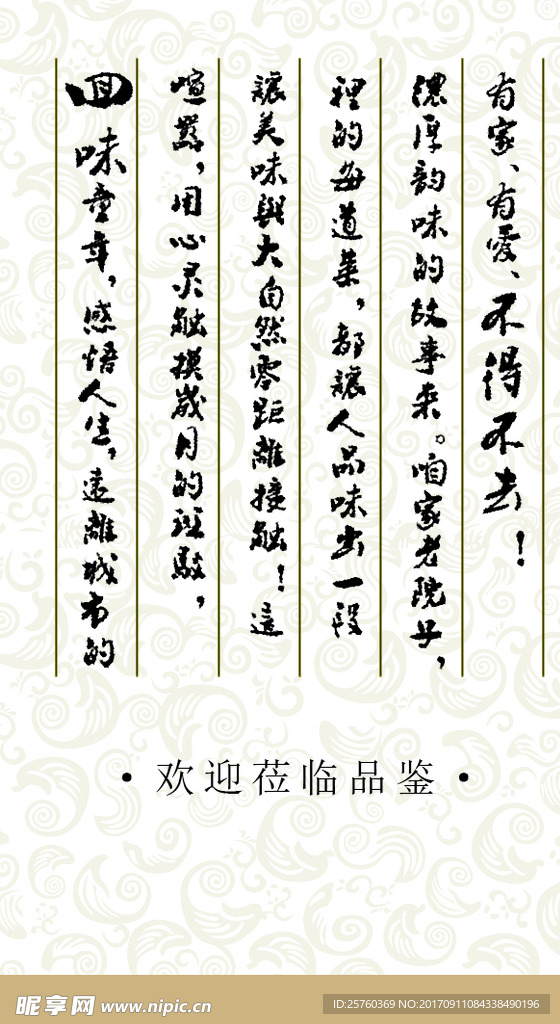 回味童年，感悟人生，远離城市的
喧嚣，用心灵触摸岁月的斑駁，
讓美味與大自然零距離接触！這
裡的每道菜，都讓人品味出一段
濃厚韵味的故事来。咱家老院子，
有家、有愛、不得不去！
·欢迎莅临品鉴·
昵享网 www.nipic.cn
ID:25760369 NO:20170911084338490196